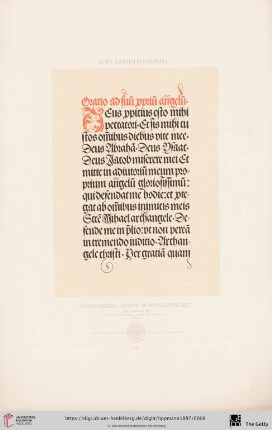 XVI. JAHRHUNDERT.
Oratio ad suū ꝓpriū angelū.
DEus ꝓpitius esto mihi
peccatori · Et sis mihi cu
stos omībus diebus vite mee
Deus Abrahā · Deus Ysaac
Deus Jacob miserere mei Et
mitte in adiutoriū meum pro
prium angelū gloriosissimū :
qui defendat me hodie : et ꝓte
gat ab omībus inimicis meis
Scte Mihael archangele · De
fende me in p̄lio : vt non perea
in tremendo iuditio · Archan
gele christi · Per gratiā quam
https://digi.ub.uni-heidelberg.de/diglit/lippmann1887/0068
© Universitätsbibliothek Heidelberg
UNIVERSITÄTS-
BIBLIOTHEK
HEIDELBERG
The Getty